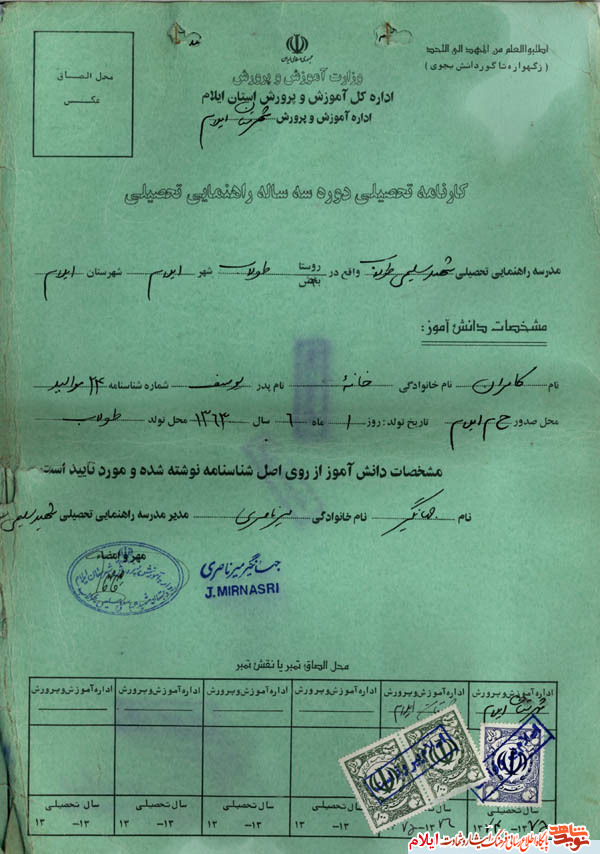 اطلبوا العلم من المهد الی اللحد
( ز گهواره تا گور دانش بجوی )
جمهوری اسلامی ایران
وزارت آموزش و پرورش
اداره کل آموزش و پرورش استان ایلام
اداره آموزش و پرورش شهرستان ایلام
محل الصاق
عکس
کارنامه تحصیلی دوره سه ساله راهنمایی تحصیلی
مدرسه راهنمایی تحصیلی شهید سلیمی طولاب واقع در روستا بخش طولاب شهر ایلام شهرستان ایلام
مشخصات دانش آموز :
نام کامران نام خانوادگی خانهٔ نام پدر یوسف شماره شناسنامه ۲۴ موالید
محل صدور ح ۲ ایلام تاریخ تولد : روز ۱ ماه ۶ سال ۱۳۶۴ محل تولد طولاب
مشخصات دانش آموز از روی اصل شناسنامه نوشته شده و مورد تأیید است.
نام جهانگیر نام خانوادگی میرناصری مدیر مدرسه راهنمایی تحصیلی شهید سلیمی
مهر و امضاء
جهانگیر میرناصری
J. MIRNASRI
محل الصاق تمبر یا نقش تمبر
اداره آموزش و پرورش اداره آموزش و پرورش اداره آموزش و پرورش اداره آموزش و پرورش اداره آموزش و پرورش اداره آموزش و پرورش
شهرستان ایلام ایلام
سال تحصیلی سال تحصیلی سال تحصیلی سال تحصیلی
۱۳۷۵ ۱۳۷۶ ۱۳ -۱۳ ۱۳ -۱۳ ۱۳ -۱۳ ۱۳ -۱۳
نوید شاهد
پایگاه اطلاع رسانی فرهنگ ایثار و شهادت ایلام